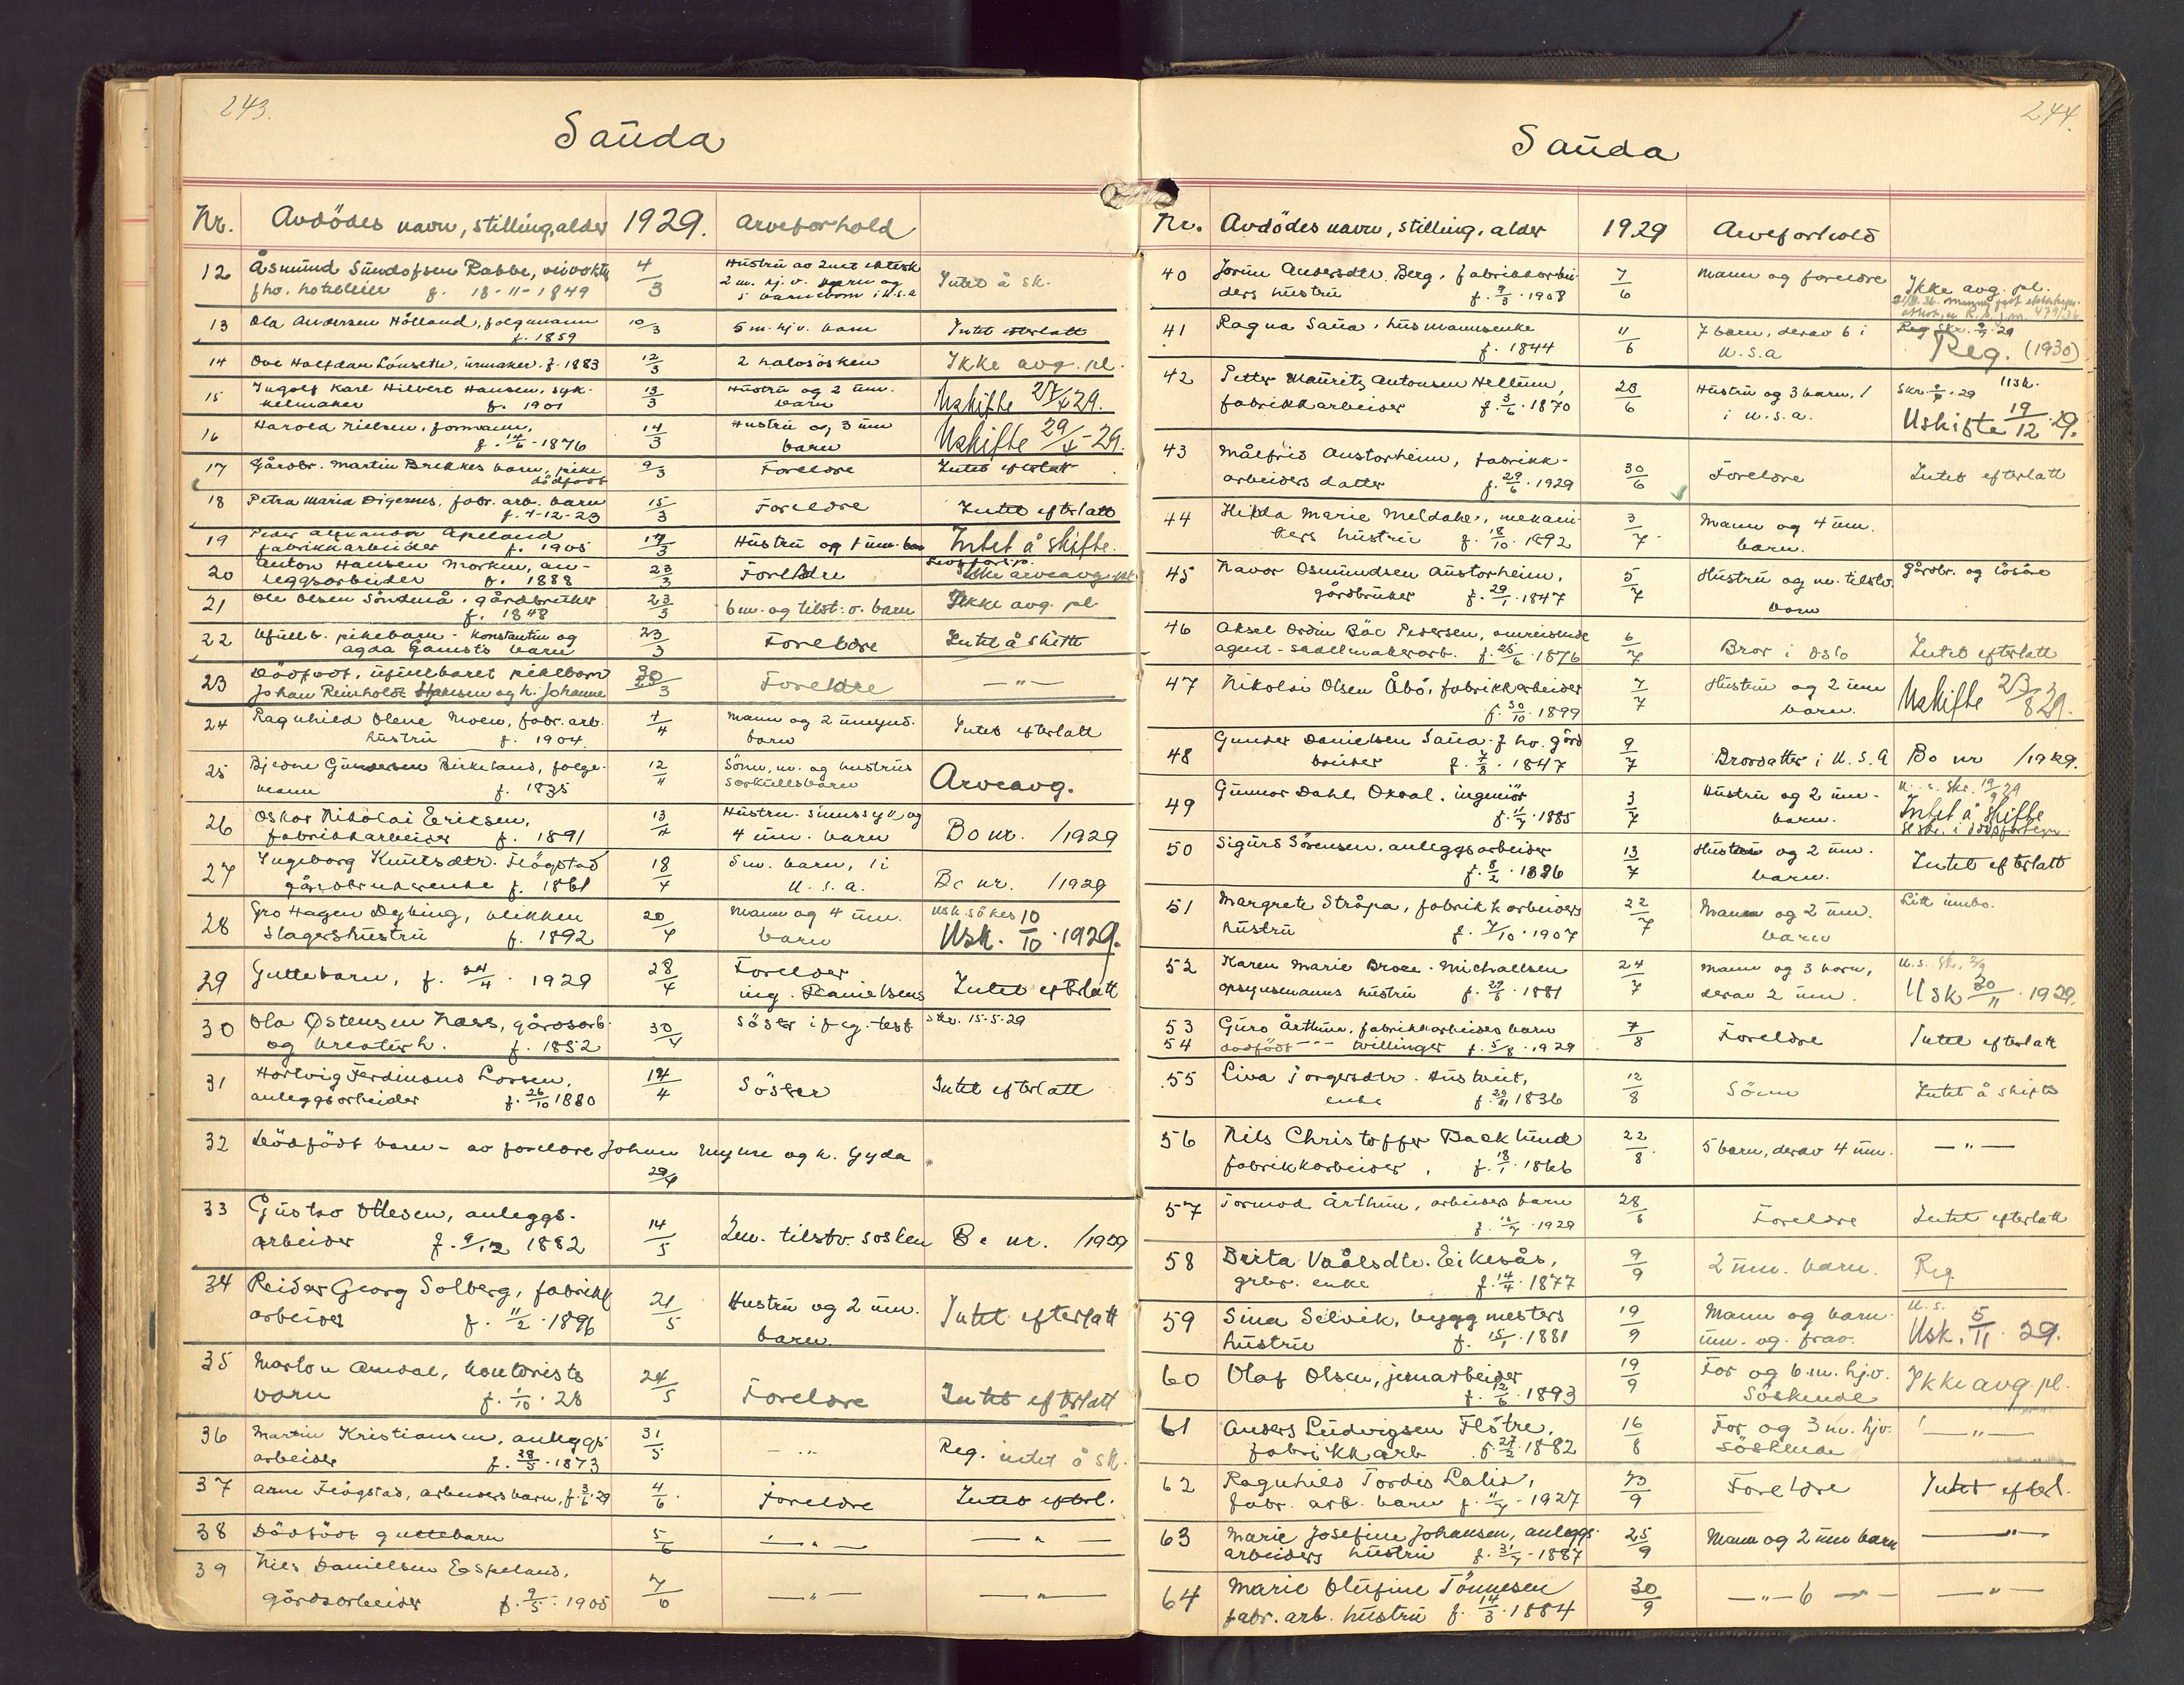 243.
Sauda
Nr. Avdödes navn, stilling, alder 1929. Arveforhold
12 Åsmund Sundofsen Rabbe, veivokter 4/3 Hustru av 2net ektesk.
fhv. hotelleier f. 18-11-1849 2 m. hj. v. barn og Intet å sk.
5 barnebarn i U.S.A
13 Ola Andersen Hölland, folgemann 10/3 5 m. hj. v. barn Intet efterlatt
f. 1859
14 Ove Halfdan Lönseth, urmaker. f. 1883 12/3 2 halvsösken Ikke avg. pl.
15 Ingolf Karl Hilbert Hansen, syk- 13/3 Hustru og 2 um.
kelmaker f. 1901 barn Uskifte 27/4 29.
16 Harald Nielsen, formann, 14/3 Hustru og 3 um
f. 14/6 - 1876 barn Uskifte 29/4 - 29.
17 Gårdbr. Martin Brekkes barn, pike 9/3 Foreldre Intet efterlat
dödfödt
18 Petra Maria Digernes, fabr. arb. barn 15/3 Foreldre Intet efterlatt
f. 4-12-23
19 Peder Alexander Apeland 17/3 Hustru og 1 um. barn Intet å skifte.
fabrikkarbeider f. 1905
20 Anton Hansen Morken, an- 23/3 Foreldre
leggsarbeider f. 1888 Ikke arveavg. pl.
21 Ole Olsen Söndenå, gårdbruker 23/3 6 m. og tilst. v. barn Ikke avg. pl
f. 1848
22 Ufullb. pikebarn - Konstantin og 23/3 Foreldre Intet å skifte
Agda Gamsts barn
23 Dödfödt, ufullbaret pikebarn 30/3 Foreldre — " —
Johan Reinholdt og h. Johanne
24 Ragnhild Olene Moen, fabr. arb. 4/4 Mann og 2 umynd.
hustru f. 1904. barn Intet efterlatt
25 Bjedne Gundersen Birkeland, folge- 12/4 Sönn, m. og hustrus
mann f. 1835 særkullsbarn Arveavg.
26 Oskar Nikolai Eriksen, 13/4 Hustru sinnssyk og
fabrikkarbeider f. 1891 4 um. barn Bo nr. /1929
27 Ingeborg Knutsdtr. Flögstad 18/4 5 m. barn, 1 i
gårdbrukerenke f. 1861 U.S.A. Bo nr. /1929
28 Gro Hagen Dybing, blikken 20/4 Mann og 4 um. Usk. sökes 10
slagershustru f. 1892 barn Usk. 10/10 · 1929.
29 Guttebarn, f. 24/4 · 1929 28/4 Forelder
ing. Danielsens Intet efterlatt
30 Ola Østensen Næss, gårdsarb. 30/4 Söster ifög. test. Skr. 15-5-29
og kreaturh. f. 1852
31 Hartvig Ferdinand Larsen, 14/4 Söster Intet efterlatt
anleggsarbeider f. 26/10 1880
32 Dödfödt barn - av foreldre Johan Myhre og h. Gyda
29/4
33 Gustav Ottesen, anleggs-
arbeider f. 9/12 1882 14/5 2 m. tilstv. sösken Bo nr. /1929
34 Reidar Georg Solberg, fabrikk 21/5 Hustru og 2 um.
arbeider f. 11/2 · 1896 barn. Intet efterlatt
35 Marton Amdal, kontorists 24/5
barn f. 1/10 · 28 Foreldre Intet efterlatt
36 Martin Kristiansen, anleggs- 31/5 — " Reg. intet å sk.
arbeider f. 28/5 · 1873
37 Arne Flögstad, arbeiders barn, f. 3/6 · 29 4/6 Foreldre Intet efterl.
38 Dödfödt guttebarn 5/6 — " — — " —
39 Nils Danielsen Espeland,
gårdsarbeider f. 9/5 · 1905 7/6 — " — — " —
244.
Sauda
Nr. Avdödes navn, stilling, alder 1929 Arveforhold
40 Jorun Andersdtr. Berg, fabrikkarbei- 7/6 Mann og foreldre Ikke avg. pl.
ders hustru f. 9/3 · 1908
41 Ragna Saua, husmannsenke 11/6 7 barn, derav 6 i
f. 1844 U.S.A Reg. (1930)
42 Petter Mauritz Antonsen Hellum, 23/6 Hustru og 3 barn, 1
fabrikkarbeider f. 3/6 · 1870 i U.S.A. Uskifte 19/12 · 29.
43 Målfrid Austarheim, fabrikk-
arbeiders datter f. 29/6 · 1929 30/6 Foreldre Intet efterlatt
44 Hilda Marie Meldahl, mekani- 3/7 Mann og 4 um.
kers hustru f. 18/10 · 1892 barn.
45 Navar Osmundsen Austarheim, 5/7 Hustru og m. tilstv. Gårdbr. og lösöre
gårdbruker f. 29/1 · 1847 barn
46 Aksel Ordin Böe Pedersen, omreisende 6/7
agent - sadelmakerarb. f. 25/6 · 1876 Bror i Oslo Intet efterlatt
47 Nikolai Olsen Åbö, fabrikkarbeider 7/7 Hustru og 2 um
f. 30/10 · 1899 barn. Uskifte 23/8 29.
48 Gunder Danielsen Saua fhv. gård 9/7
bruker f. 7/8 · 1847 Brordatter i U.S.A Bo nr /1929.
49 Gunnar Dahl Oxaal, ingeniör 3/7 Hustru og 2 um. U.s. skr. 19/9 29
f. 11/7 · 1885 barn. Intet å skifte
50 Sigurd Sörensen, anleggsarbeider 13/7 Hustru og 2 um.
f. 8/2 · 1896 barn. Intet efterlatt
51 Margrete Stråpa, fabrikkarbeiders 22/7 Mann og 2 um. Litt innbo.
hustru f. 7/10 · 1907 barn
52 Karen Marie Broee Michaelsen 24/7 Mann og 3 barn,
opsynsmanns hustru f. 29/8 · 1881 derav 2 um. Usk 30/11 · 1929.
53 Guro Årthun, fabrikkarbeiders barn 7/8 Foreldre
54 dödfödt — " — tvillinger f. 5/8 · 1929 Intet efterlatt
55 Liva Torgersdtr. Hustveit, 12/8 Sönn Intet å skifte
enke f. 29/11 1836
56 Nils Christoffer Backlund 22/8 5 barn, derav 4 um. — " —
fabrikkarbeider, f. 18/1 · 1866
57 Tormod Årthun, arbeiders barn 28/8 Foreldre Intet efterlatt
1929
58 Brita Vrålsdtr. Eikesås, 9/9 2 um. barn. Reg.
grbr. enke f. 14/4 · 1877
59 Sina Selvik, byggmesters 19/9 Mann og barn U.s.
hustru f. 15/1 · 1881 um. og frav. Usk. 5/11 · 29.
60 Olaf Olsen, jernarbeider 19/9 Far og 6 m. hj.v. Ikke avg. pl.
f. 12/6 · 1893 Söskende
61 Anders Ludvigsen Flötre, 16/8 Far og 3 m. hjv. — " —
fabrikkarb f. 27/2 · 1882 Söskende
62 Ragnhild Tordis Lalid, 23/9 Foreldre Intet efterl.
fabr. arb. barn f. 11/4 - 1927
63 Marie Josefine Johansen, anleggs- 25/9 Mann og 2 um barn — " —
arbeiders hustru f. 31/7 - 1887
64 Marie Olufine Tönnesen 30/9 — " — 6 — " — — " —
fabr. arb. hustru f. 14/3 · 1884